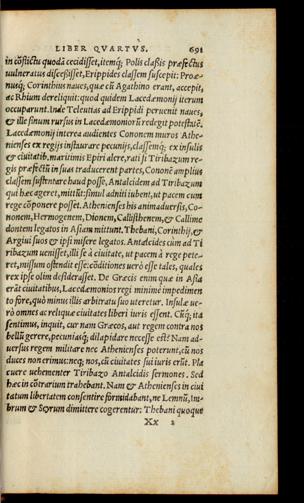 LIBER QVARTVS. 691
in cōflictu quodā cecidisset, itemq́; Polis classis præfectus
vulneratus discessisset, Erippides classem suscepit: Proæ-
nusq́; Corinthius naues, quæ cū Agathino erant, accepit,
ac Rhium dereliquit: quod quidem Lacedæmonij iterum
occuparunt. Inde Teleutias ad Erippidi peruenit naues,
& ille sinum rursus in Lacedæmoniorū redegit potestatē.
Lacedæmonij interea audientes Cononem muros Athe-
nienses ex regijs instaurare pecunijs, classemq́; ex insulis
& ciuitatib. maritimis Epiri alere, rati si Tiribazum re-
gis præfectū in suas traducerent partes, Cononē amplius
classem sustentare haud posse, Antalcidem ad Tiribazum
qui hæc ageret, mittūt: simul adniti iubent, ut pacem cum
rege cōponere posset. Athenienses his animaduersis, Co-
nonem, Hermogenem, Dionem, Callisthenem, & Callime
dontem legatos in Asiam mittunt. Thebani, Corinthij, &
Argiui suos & ipsi misere legatos. Antalcides cùm ad Ti
ribazum uenisset, illi se à ciuitate, ut pacem à rege pete-
ret, missum ostendit esse: cōditiones uerò esse tales, quales
rex ipse olim desiderasset. De Græcis enim quæ in Asia
erāt ciuitatibus, Lacedæmonios regi minimè impedimen
to fore, quò minus illis arbitratu suo uteretur. Insulæ ue-
rò omnes ac reliquæ ciuitates liberi iuris essent. Cūq́; ita
sentimus, inquit, cur nam Græcos, aut regem contra nos
bellū gerere, pecuniasq́; dilapidare necesse est? Nam ad-
uersus regem militare nec Athenienses poterunt, cū nos
duces non erimus: neq; nos, cū ciuitates sui iuris erūt. Pla
cuere uehementer Tiribazo Antalcidis sermones. Sed
hæc in cōtrarium trahebant. Nam & Athenienses in ciui
tatum libertatem consentire formidabant, ne Lemnū, Im-
brum & Scyrum dimittere cogerentur: Thebani quoque
Xx 2